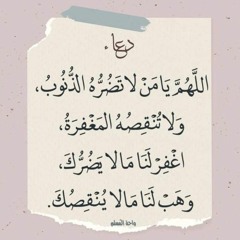 دعاء
اللَّهُمَّ يَا مَنْ لَا تَضُرُّهُ الذُّنُوبُ،
وَلَا تُنْقِصُهُ المَغْفِرَةُ،
اغْفِرْ لَنَا مَا لَا يَضُرُّكَ،
وَهَبْ لَنَا مَا لَا يُنْقِصُكَ.
واحة المسلم